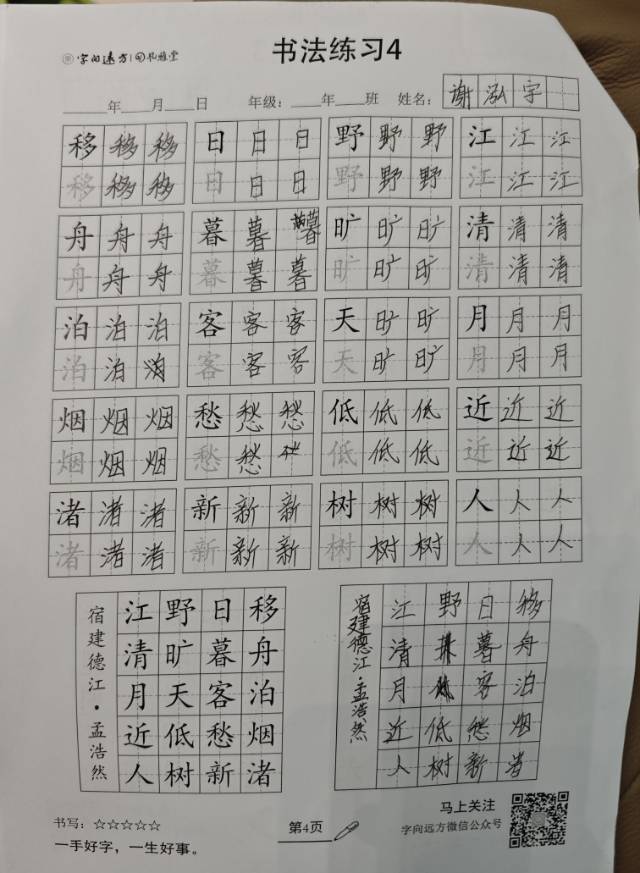 字向远方 礼雅堂
书法练习4
年 月 日 年级: 年 班 姓名: 谢泓宇
移移移 日日日 野野野 江江江
移移移 日日日 野野野 江江江
舟舟舟 暮暮暮 旷旷旷 清清清
舟舟舟 暮暮暮 旷旷旷 清清清
泊泊泊 客客客 天旷旷 月月月
泊泊 客客客 天旷旷 月月月
烟烟烟 愁愁愁 低低低 近近近
烟烟烟 愁愁 低低低 近近近
渚渚渚 新新新 树树树 人人人
渚渚渚 新新新 树树树 人人人
宿建德江·孟浩然
江野日移
清旷暮舟
月天客泊
近低愁烟
人树新渚
宿建德江·孟浩然
江野日移
清暮舟
月客泊
近低愁烟
人树新渚
书写: ☆☆☆☆☆
一手好字，一生好事。
第4页
马上关注
字向远方微信公众号